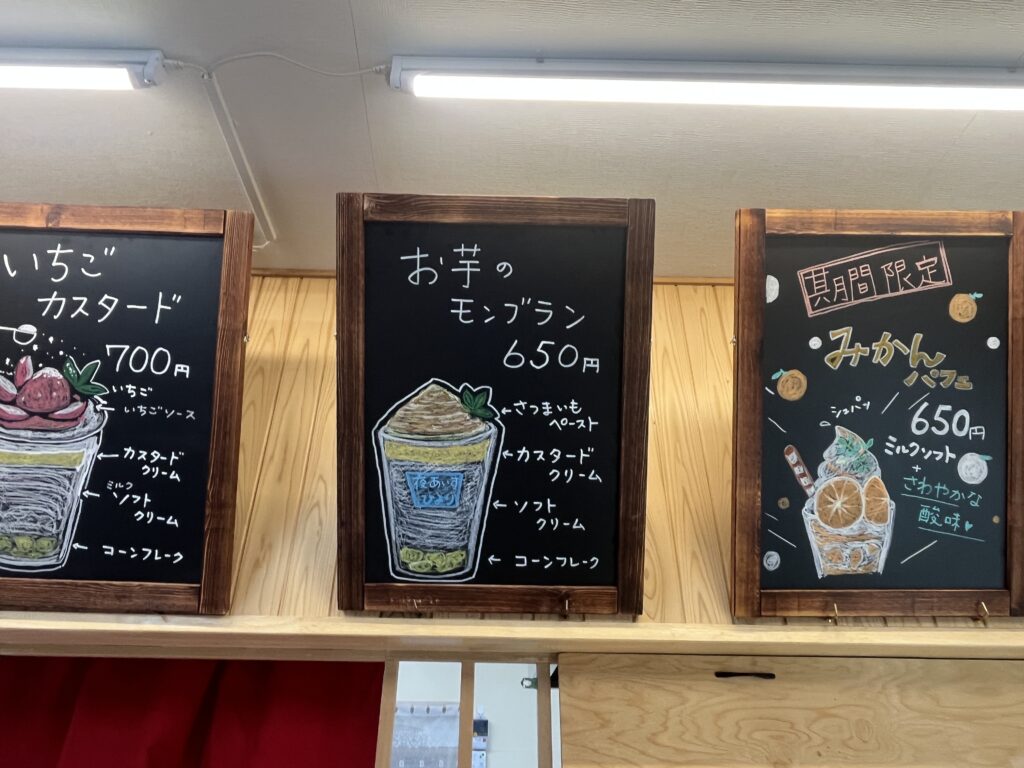 いちご
カスタード
700円
いちご
いちごソース
カスタード
クリーム
ミルク
ソフト
クリーム
コーンフレーク
お芋の
モンブラン
650円
さつまいも
ペースト
カスタード
クリーム
ソフト
クリーム
コーンフレーク
夜あいす
ひとり
期間限定
みかん
パフェ
650円
ミルクソフト
+
さわやかな
酸味